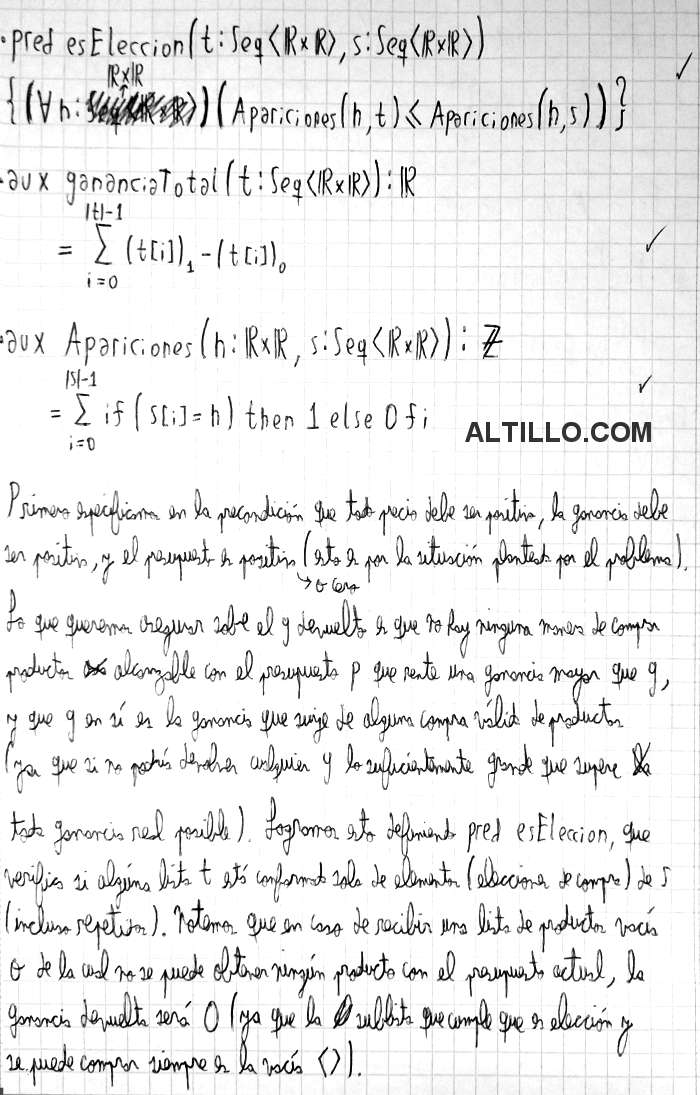 • pred esEleccion(t: Seq⟨ℝxℝ⟩, s: Seq⟨ℝxℝ⟩)
ℝxℝ
{(∀h: )(Apariciones(h,t) ≤ Apariciones(h,s))}
✓
• aux gananciaTotal(t: Seq⟨ℝxℝ⟩): ℝ
|t|-1
= ∑ (t[i])₁ - (t[i])₀
i=0
✓
• aux Apariciones(h: ℝxℝ, s: Seq⟨ℝxℝ⟩): ℤ
|s|-1
= ∑ if (s[i]=h) then 1 else 0 fi
i=0
✓
ALTILLO.COM
Primero especificamos en la precondición que todo precio debe ser positivo, la ganancia debe
ser positiva, y el presupuesto es positivo (esto es por la situación planteada por el problema).
↳ o cero
Lo que queremos asegurar sobre el g devuelto es que no hay ninguna manera de comprar
productos alcanzable con el presupuesto p que rente una ganancia mayor que g,
y que g en sí es la ganancia que surge de alguna compra válida de productos
(ya que si no podrís devolver cualquier g lo suficientemente grande que supere
toda ganancia real posible). Logramos esto definiendo pred esEleccion, que
verifica si alguna lista t está conformada solo de elementos (elecciones de compra) de s
(incluso repetidos). Notemos que en caso de recibir una lista de productos vacía
o de la cual no se puede obtener ningún producto con el presupuesto actual, la
ganancia devuelta será 0 (ya que la sublista que cumple que es elección y
se puede comprar siempre es la vacía ⟨⟩).